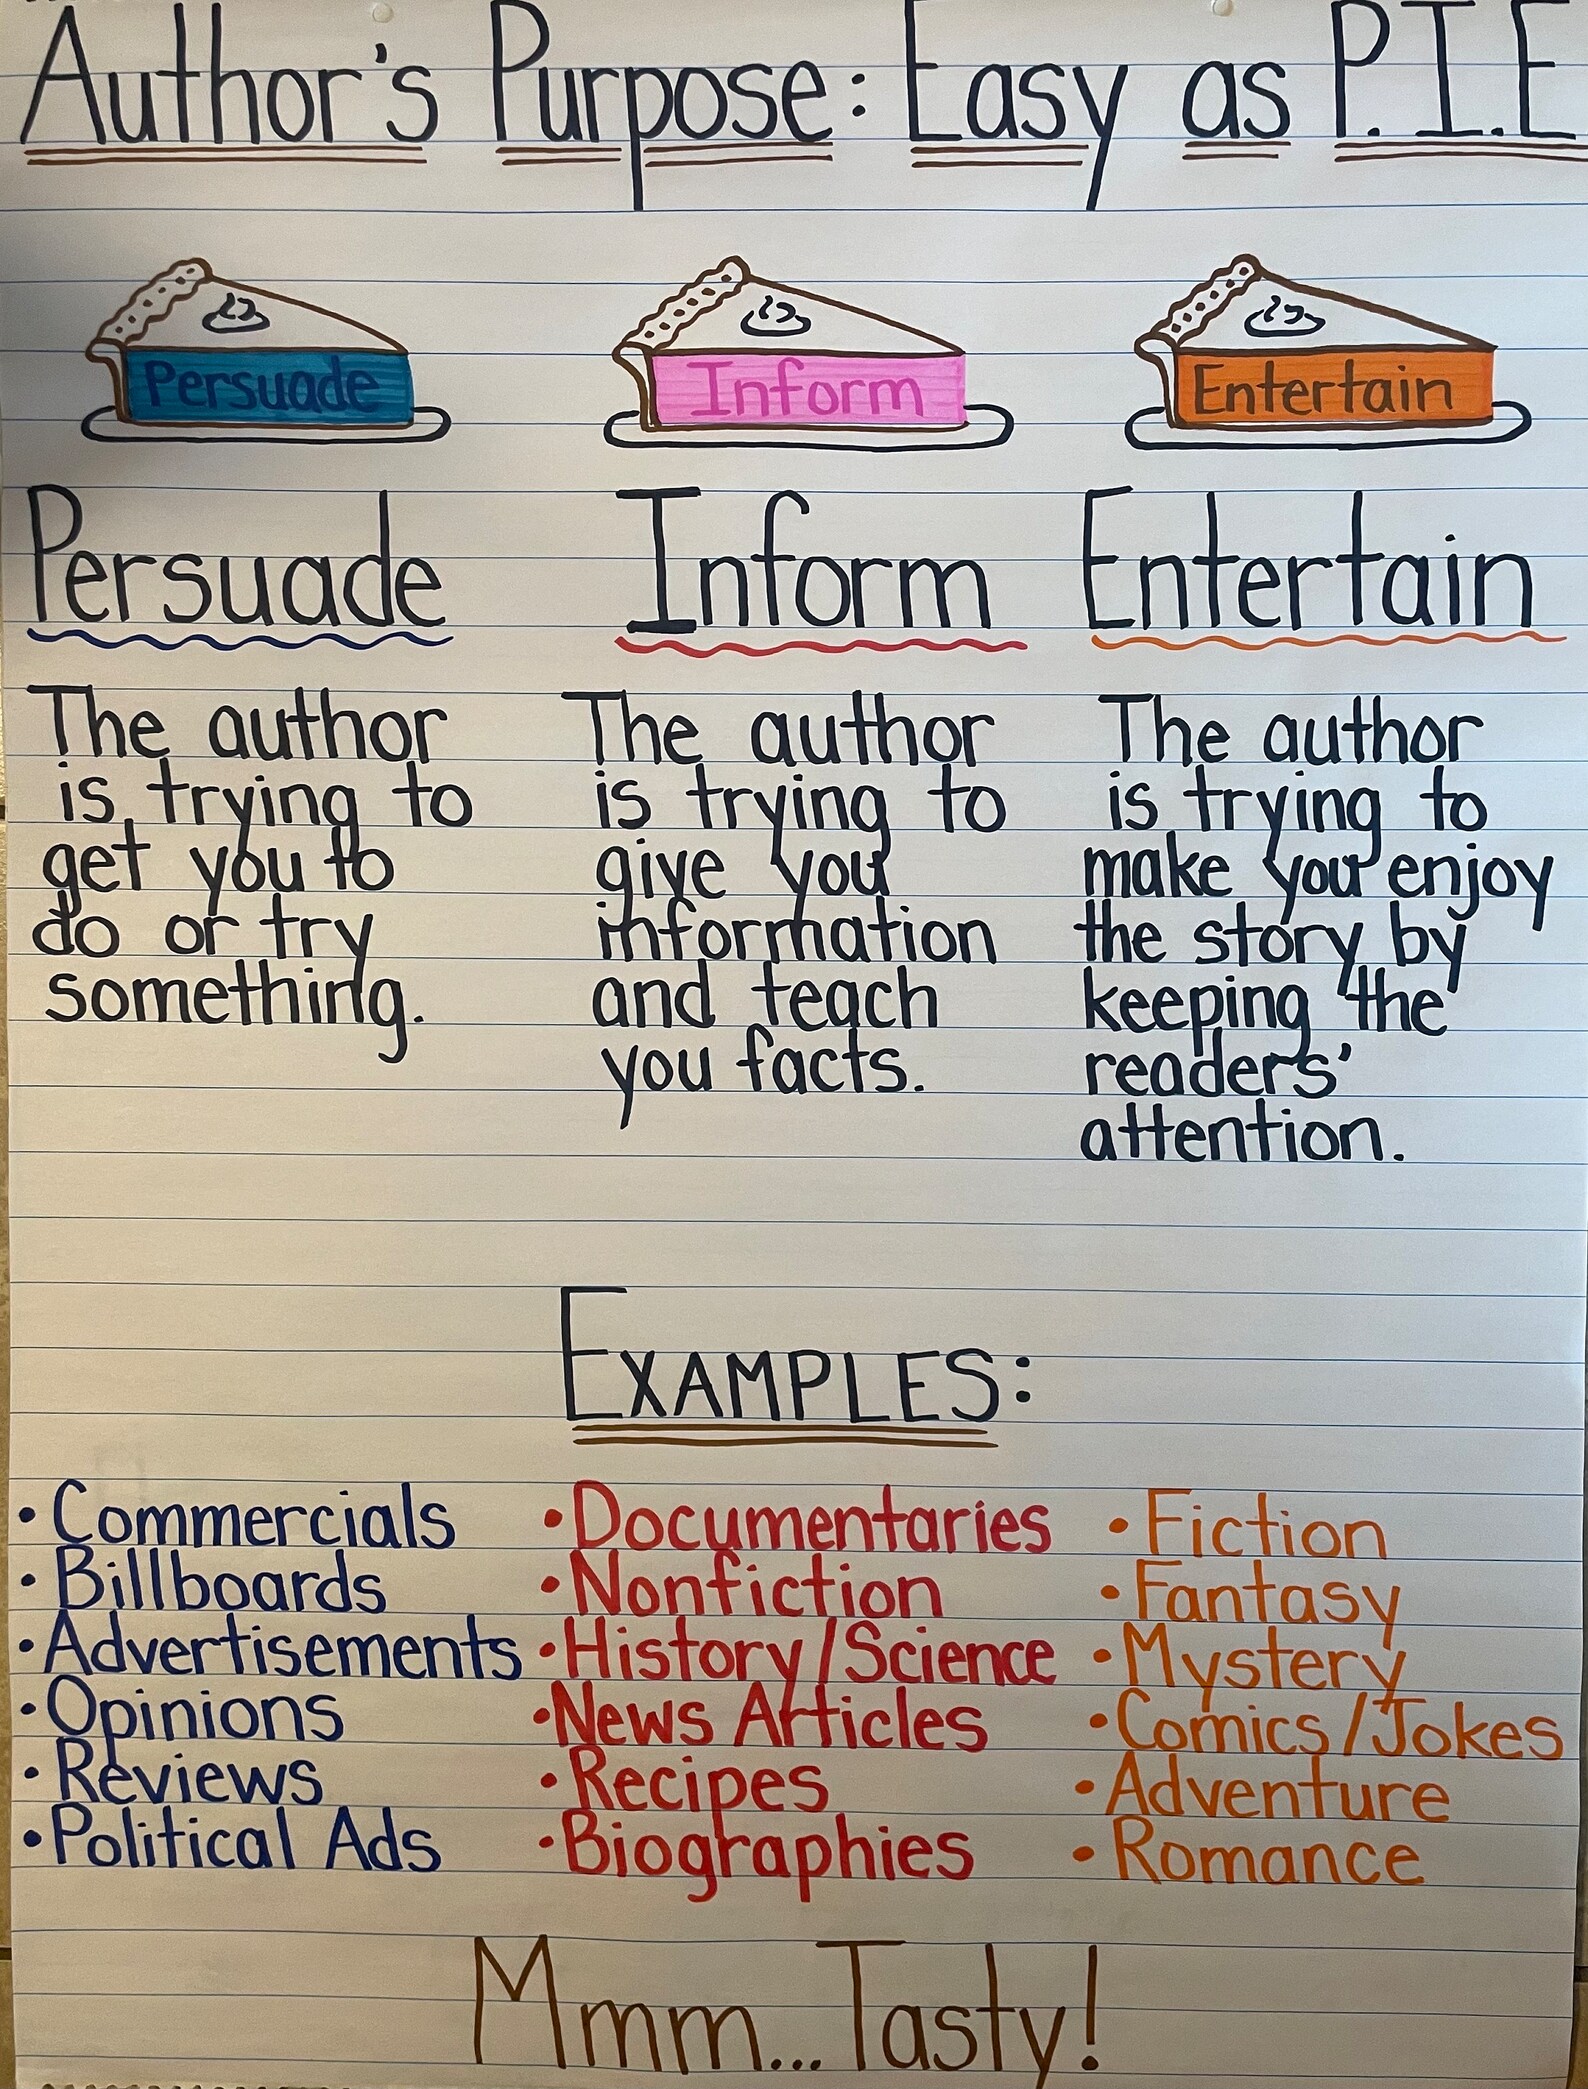 Author's Purpose: Easy as P.I.E
Persuade
Inform
Entertain
Persuade
The author
is trying to
get you to
do or try
something.
Inform
The author
is trying to
give you
information
and teach
you facts.
Entertain
The author
is trying to
make you enjoy
the story by
keeping the
readers'
attention.
EXAMPLES:
• Commercials
• Billboards
• Advertisements
• Opinions
• Reviews
• Political Ads
• Documentaries
• Nonfiction
• History/Science
• News Articles
• Recipes
• Biographies
• Fiction
• Fantasy
• Mystery
• Comics/Jokes
• Adventure
• Romance
Mmm...Tasty!